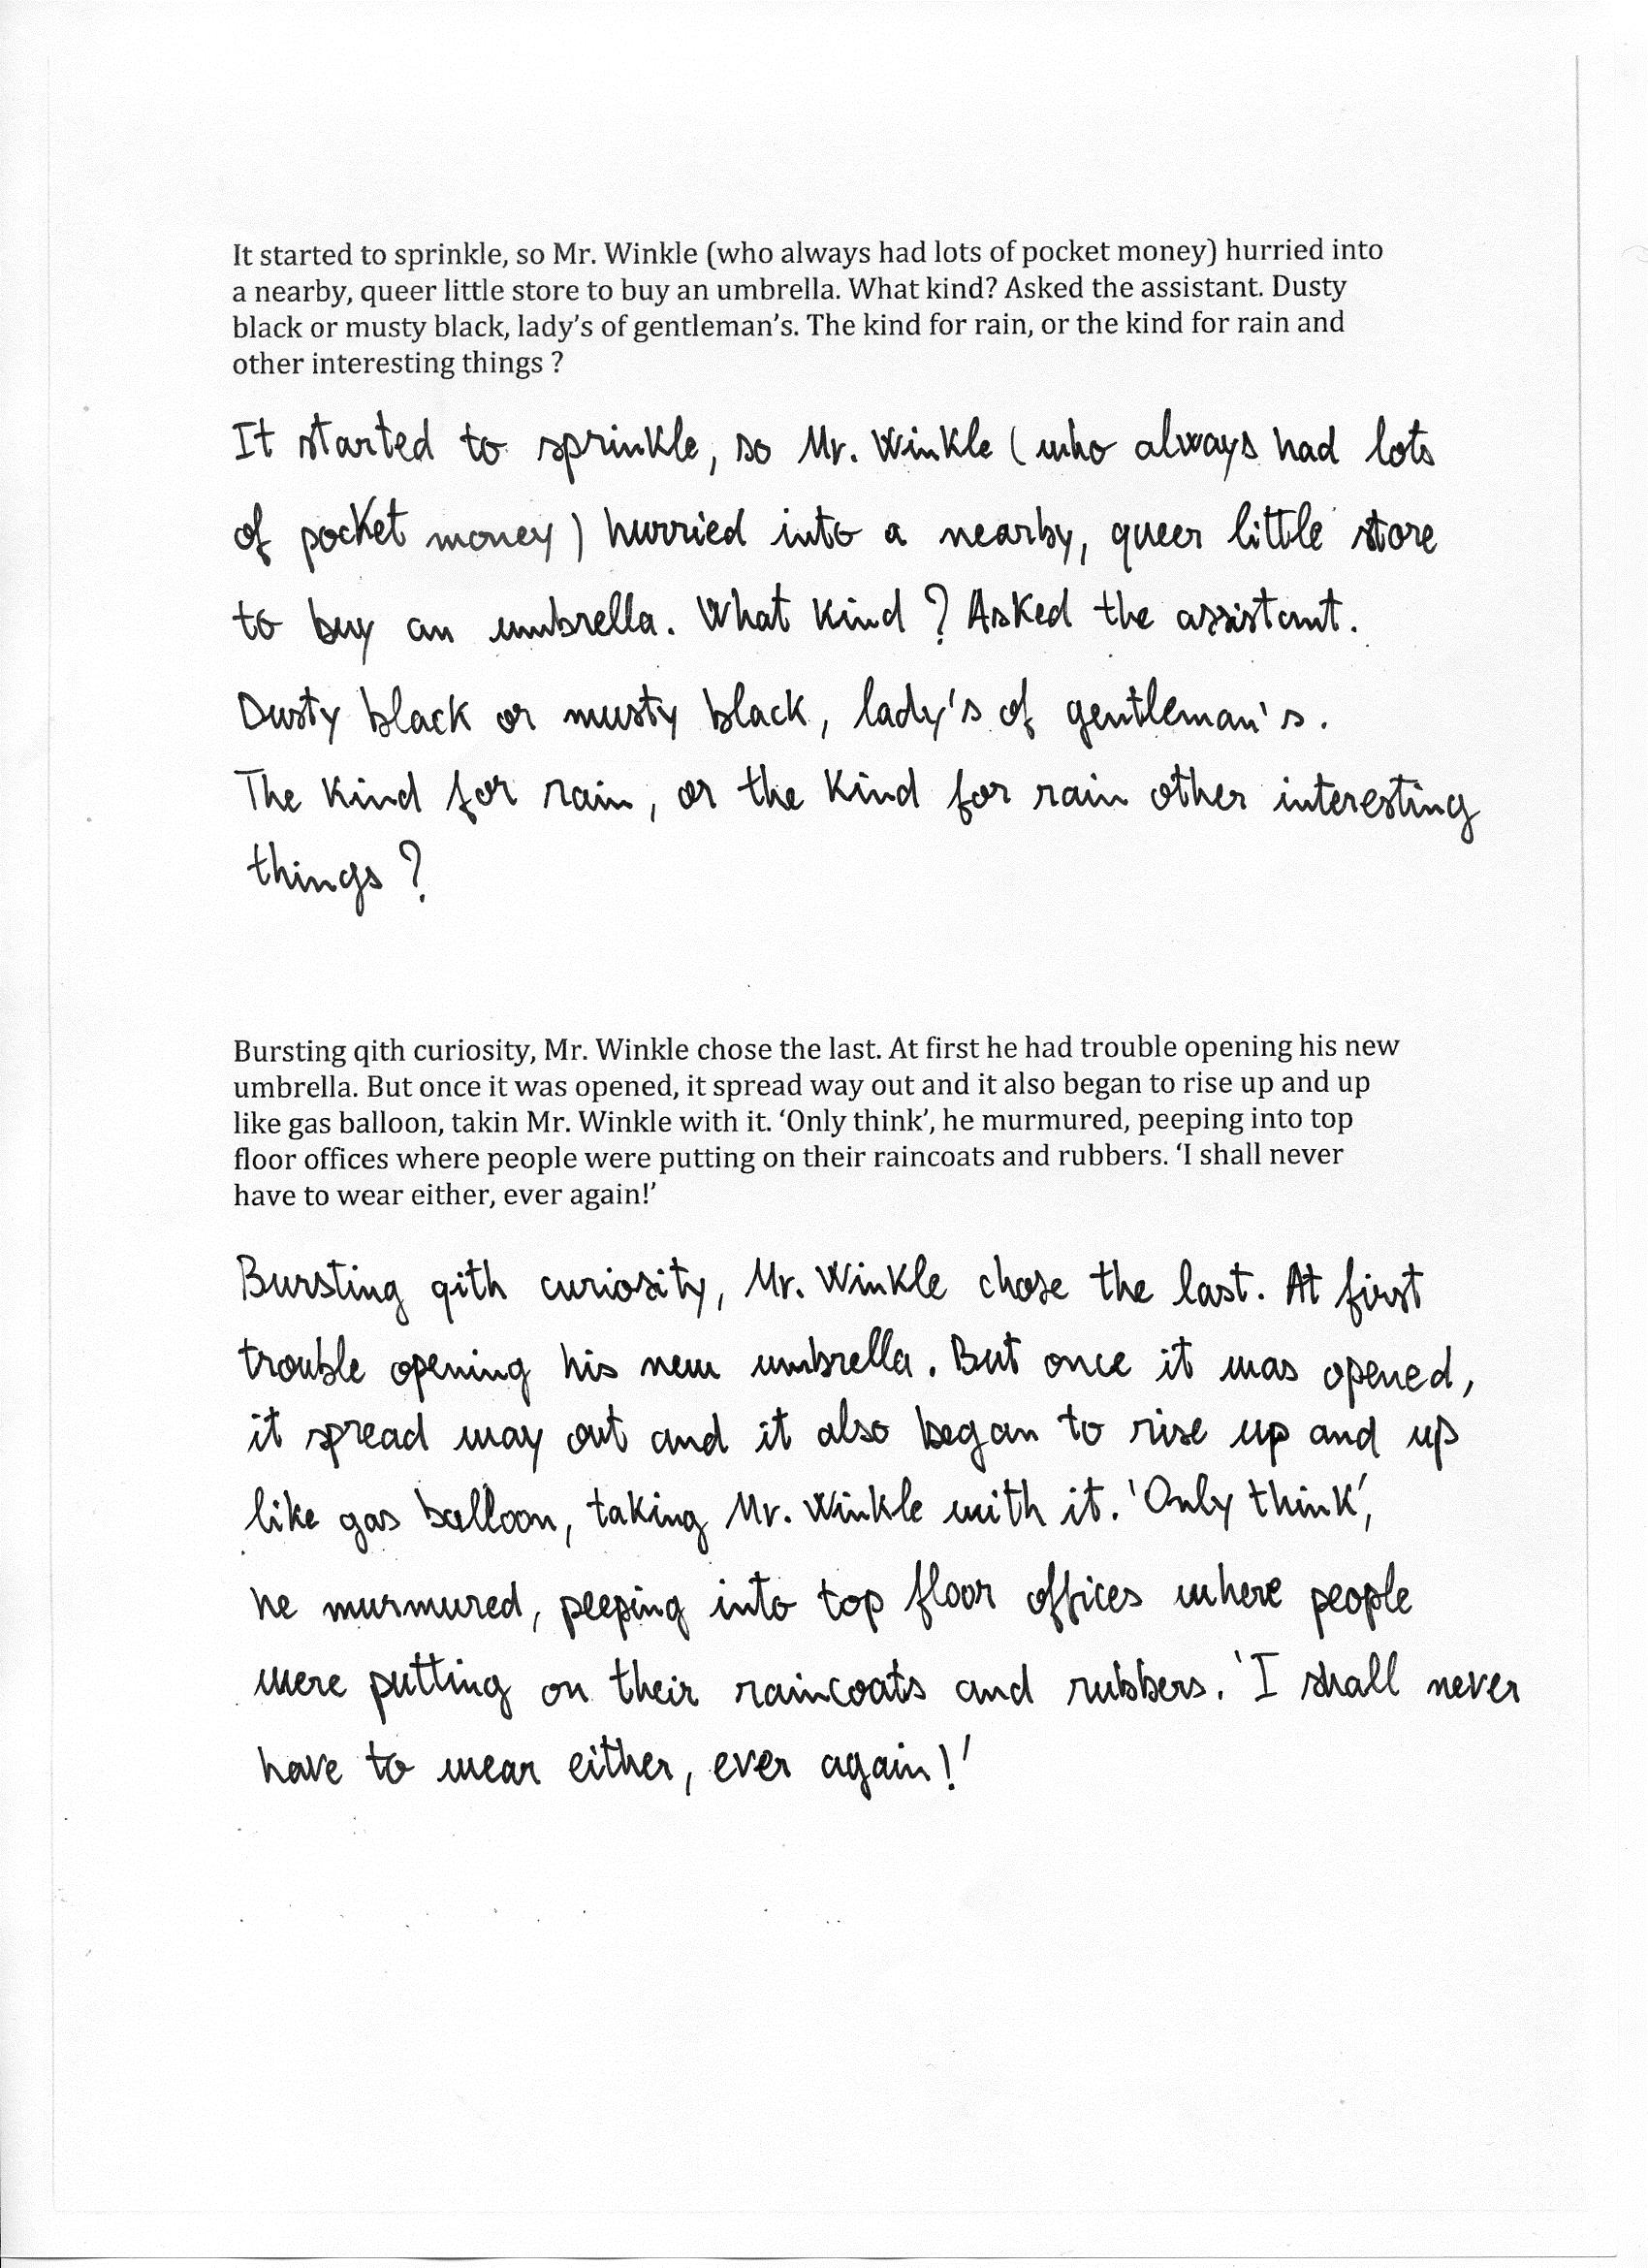 It started to sprinkle, so Mr. Winkle (who always had lots of pocket money) hurried into
a nearby, queer little store to buy an umbrella. What kind? Asked the assistant. Dusty
black or musty black, lady's of gentleman's. The kind for rain, or the kind for rain and
other interesting things ?
It started to sprinkle, so Mr. Winkle ( who always had lots
of pocket money ) hurried into a nearby, queer little store
to buy an umbrella. What kind ? Asked the assistant.
Dusty black or musty black, lady's of gentleman's.
The kind for rain, or the kind for rain other interesting
things ?
Bursting qith curiosity, Mr. Winkle chose the last. At first he had trouble opening his new
umbrella. But once it was opened, it spread way out and it also began to rise up and up
like gas balloon, takin Mr. Winkle with it. ‘Only think’, he murmured, peeping into top
floor offices where people were putting on their raincoats and rubbers. ‘I shall never
have to wear either, ever again!’
Bursting qith curiosity, Mr. Winkle chose the last. At first
trouble opening his new umbrella. But once it was opened,
it spread way out and it also began to rise up and up
like gas balloon, taking Mr. Winkle with it. 'Only think',
he murmured, peeping into top floor offices where people
were putting on their raincoats and rubbers. 'I shall never
have to wear either, ever again!'